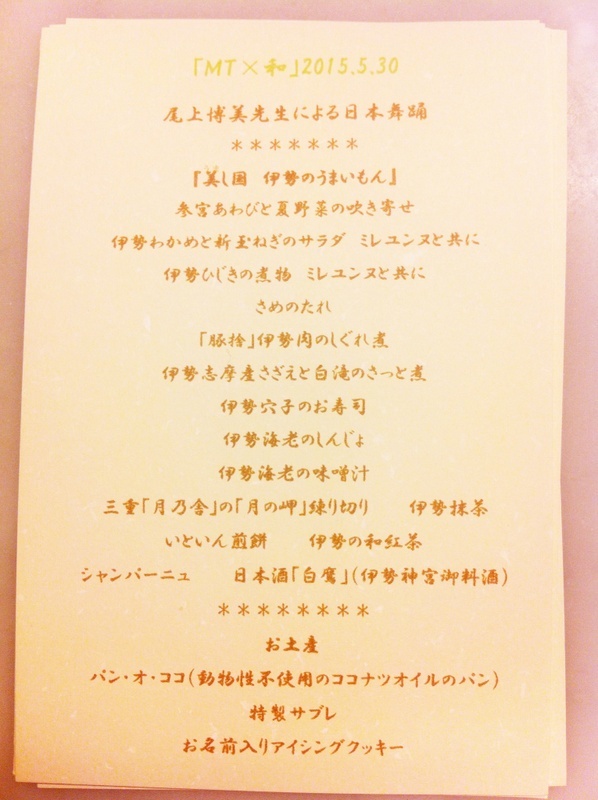 「MT×和」2015.5.30
尾上博美先生による日本舞踊
＊＊＊＊＊＊＊
『美し国 伊勢のうまいもん』
参宮あわびと夏野菜の吹き寄せ
伊勢わかめと新玉ねぎのサラダ ミレユンヌと共に
伊勢ひじきの煮物 ミレユンヌと共に
さめのたれ
「豚捨」伊勢肉のしぐれ煮
伊勢志摩産さざえと白滝のさっと煮
伊勢穴子のお寿司
伊勢海老のしんじょ
伊勢海老の味噌汁
三重「月乃舎」の「月の岬」練り切り 伊勢抹茶
いといん煎餅 伊勢の和紅茶
シャンパーニュ 日本酒「白鷹」(伊勢神宮御料酒)
＊＊＊＊＊＊＊＊
お土産
パン・オ・ココ(動物性不使用のココナツオイルのパン)
特製サブレ
お名前入りアイシングクッキー